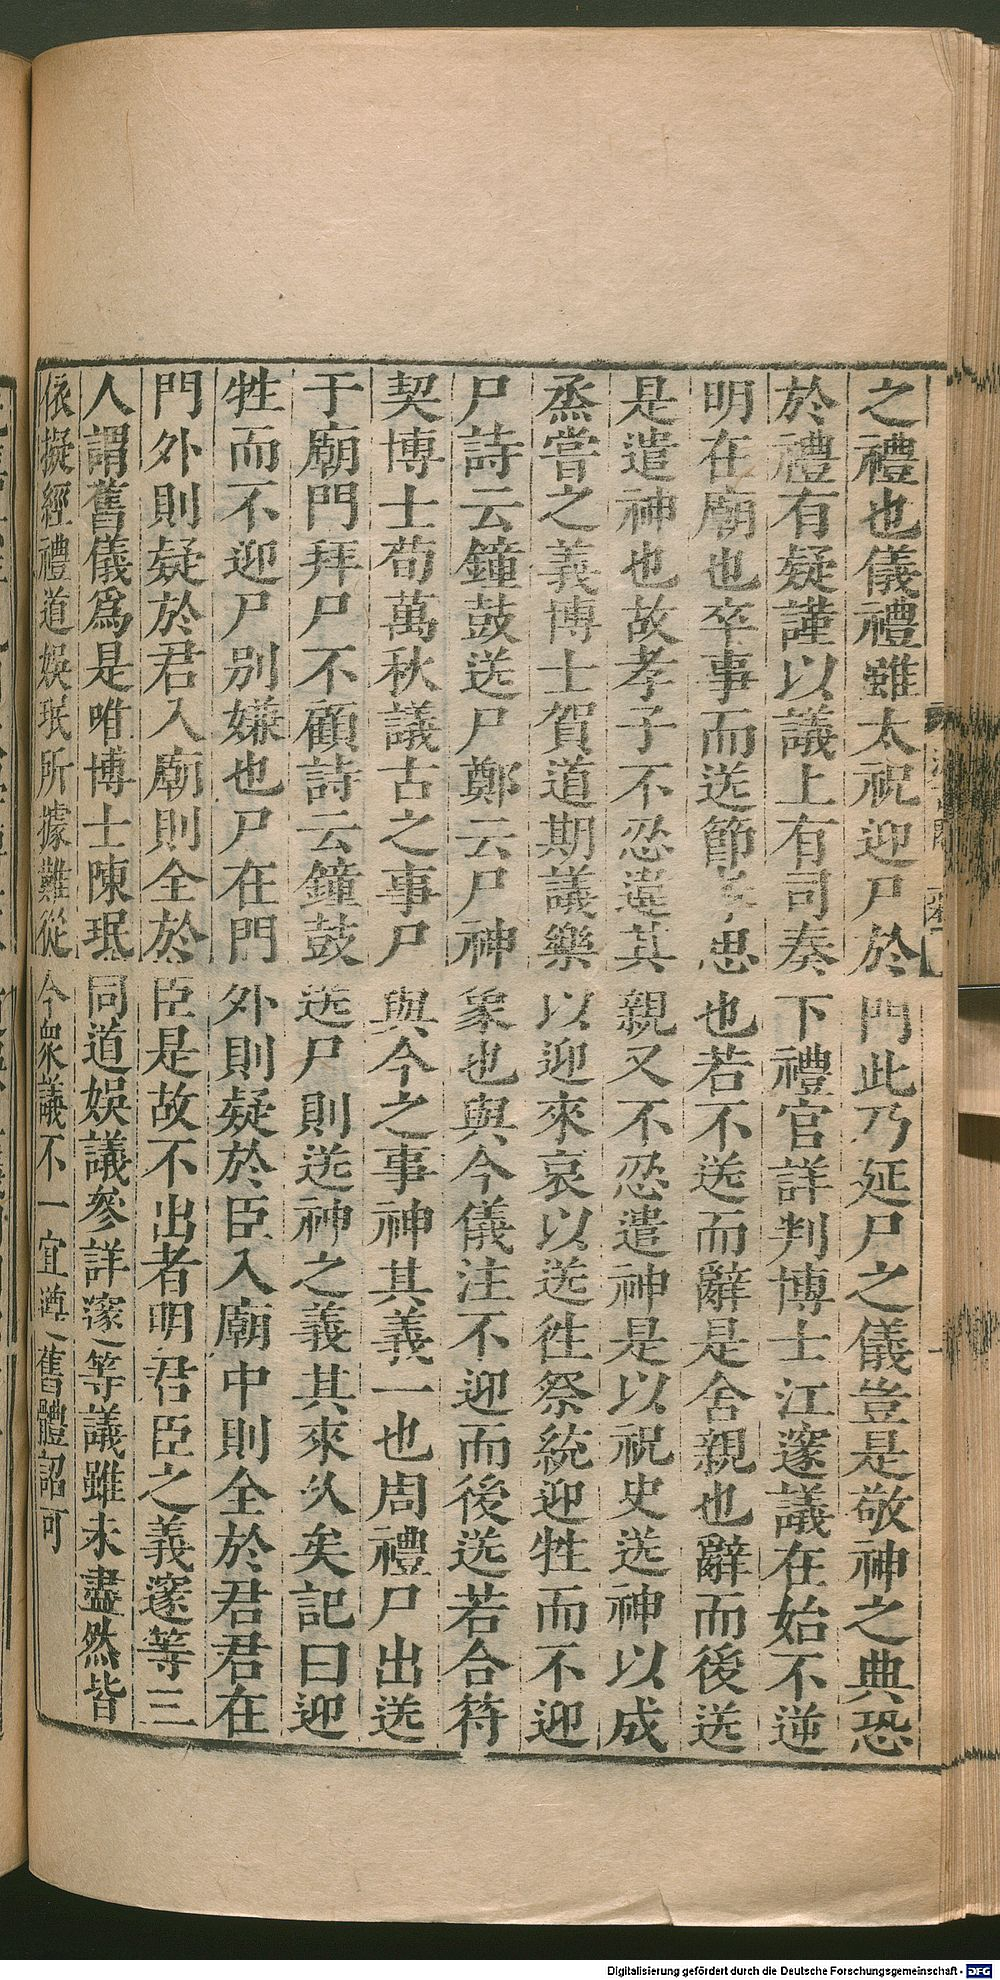 之禮也儀禮雖太祝迎尸於門此乃延尸之儀豈是敬神之典恐
於禮有疑謹以議上有司奏下禮官詳判博士江邃議在始不逆
明在廟也卒事而送節孝思也若不送而辭是舍親也辭而後送
是遣神也故孝子不忍違其親又不忍遣神是以祝史送神以成
烝嘗之義博士賀道期議樂以迎來哀以送徃祭統迎牲而不迎
尸詩云鐘鼓送尸鄭云尸神象也與今儀注不迎而後送若合符
契博士荀萬秋議古之事尸與今之事神其義一也周禮尸出送
于廟門拜尸不顧詩云鐘鼓送尸則送神之義其來久矣記曰迎
牲而不迎尸别嫌也尸在門外則疑於臣入廟中則全於君君在
門外則疑於君入廟則全於臣是故不出者明君臣之義邃等三
人謂舊儀爲是唯博士陳珉同道娛議參詳邃等議雖未盡然皆
依擬經禮道娛珉所據難從今衆議不一宜遵舊體詔可
Digitalisierung gefördert durch die Deutsche Forschungsgemeinschaft - DFG